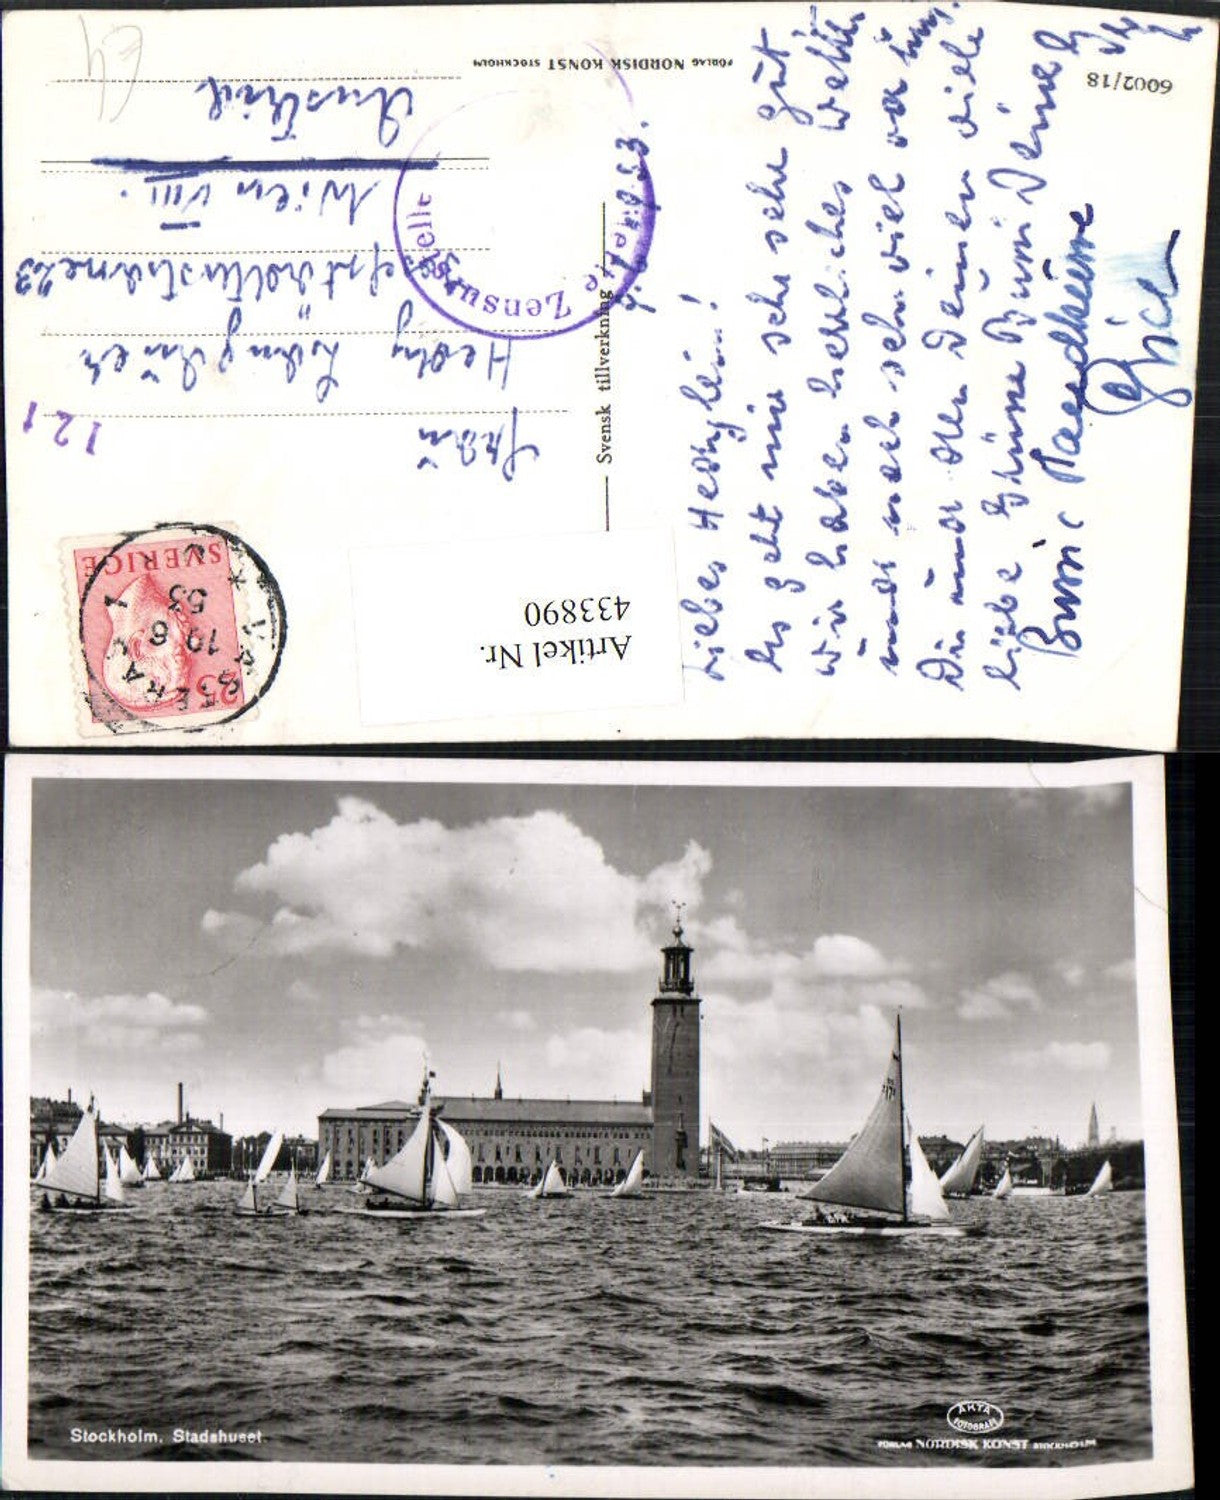 6002/18
FÖRLAG NORDISK KONST STOCKHOLM
Svensk tillverkning
Liebes Hedylein!
Es geht mir sehr sehr gut
Wir haben herrliches Wetter
und noch sehr viel vor uns.
Dir und den Deinen viele
liebe Grüsse Bussi Deine
Bussi
Erich
Frau
Hedy
Wien VIII.
Austria
Zensurstelle
121
E4
SVERIGE
25
19 6
53
Artikel Nr.
433890
Stockholm. Stadshuset.
ÄKTA
FOTOGRAFI
FÖRLAG NORDISK KONST STOCKHOLM